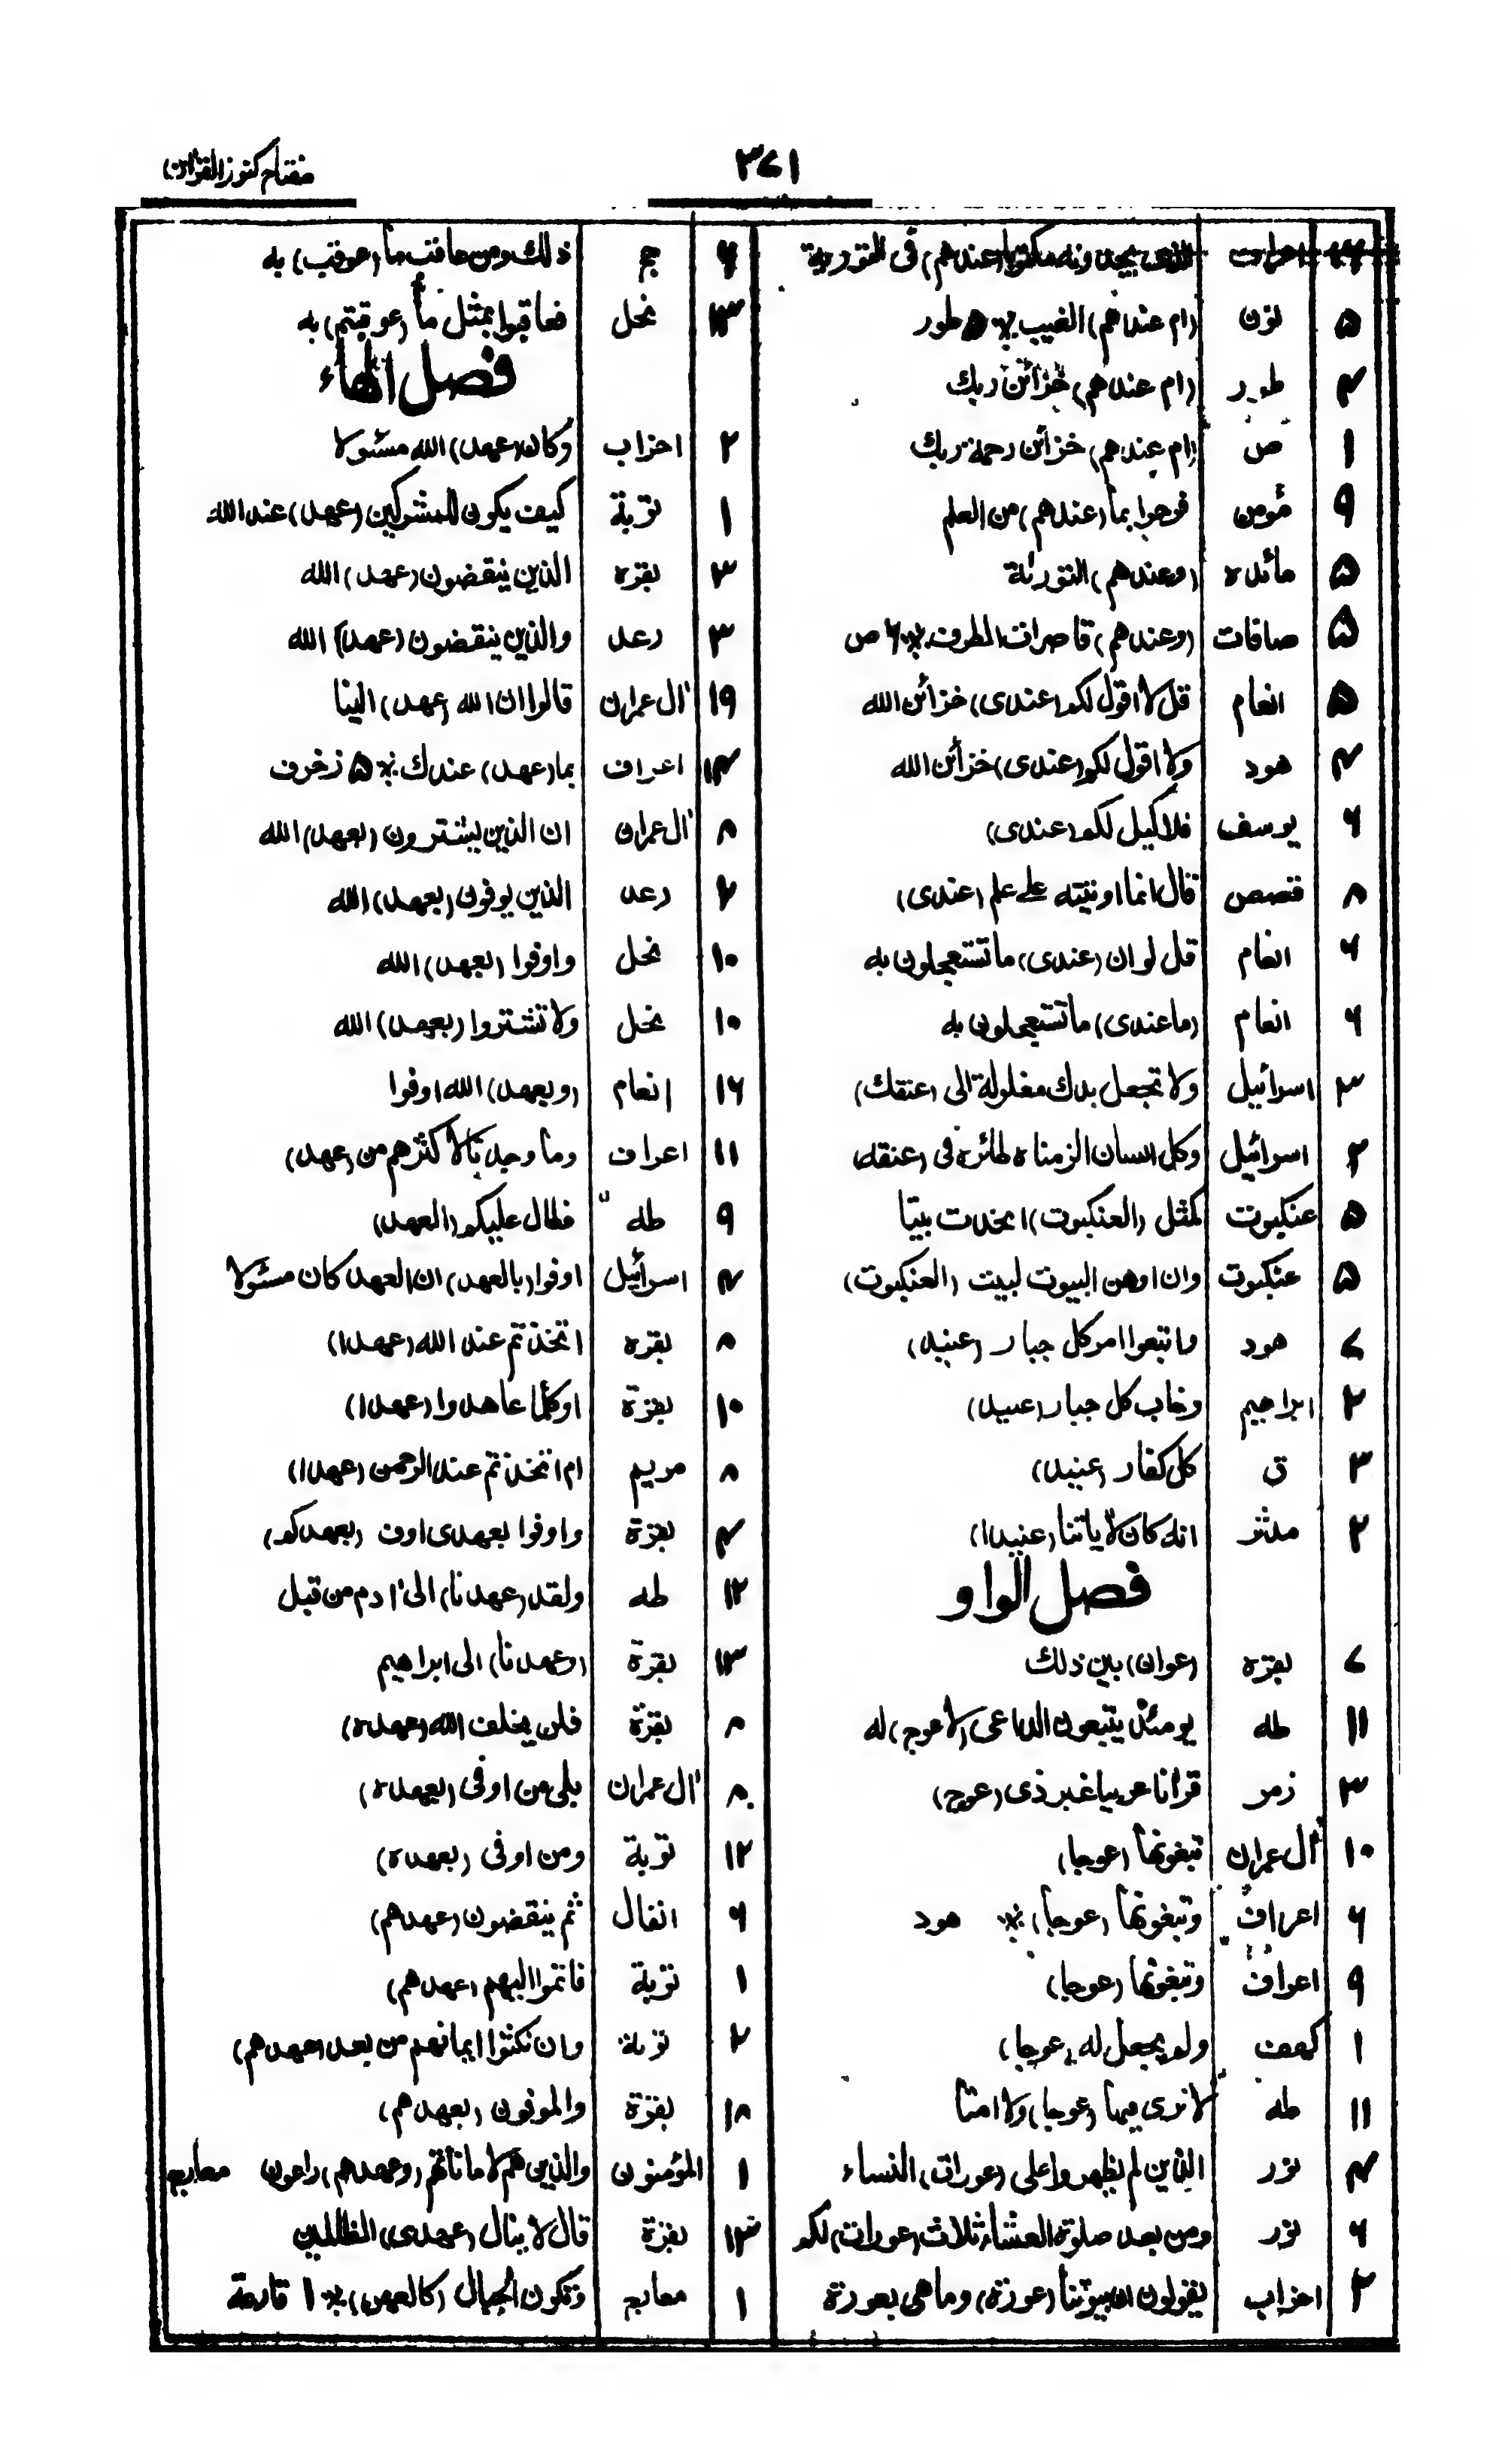 ٣٧١
مفتاح كنوز القرآن
١٩ اعراف الذى يجدونه مكتوبا (عندهم) فى التورية
۵ نون (ام عندهم) الغيب ※ ۵ طور
۴ طور (ام عندهم) خزائن ربك
١ ص (ام عندهم) خزائن رحمة ربك
٩ مؤمن فرحوا بما (عندهم) من العلم
۵ مائده (وعندهم) التورىٰة
۵ صافات (وعندهم) قاصرات الطرف ※ ۶ ص
۵ انعام قل لا اقول لكم (عندى) خزائن الله
۴ هود ولا اقول لكم (عندى) خزائن الله
۶ يوسف فلا كيل لكم (عندى)
٨ قصص قال انما اوتيته على علم (عندى)
۶ انعام قل لو ان (عندى) ما تستعجلون به
۶ انعام (ما عندى) ما تستعجلون به
٣ اسرائيل ولا تجعل يدك مغلولة الى (عنقك)
٢ اسرائيل وكل انسان الزمناه طائره فى (عنقه)
۵ عنكبوت كمثل (العنكبوت) اتخذت بيتا
۵ عنكبوت وان اوهن البيوت لبيت (العنكبوت)
٧ هود واتبعوا امر كل جبار (عنيد)
٢ ابراهيم وخاب كل جبار (عنيد)
٣ ق كل كفار (عنيد)
٢ مدثر انه كان لاياتنا (عنيدا)
فصل الواو
٧ بقره (عوان) بين ذلك
١١ طه يومئذ يتبعون الداعى (لا عوج) له
٣ زمر قرانا عربيا غير ذى (عوج)
١٠ اٰل عمران تبغونها (عوجا)
۶ اعراف وتبغونها (عوجا) ※ هود
٩ اعراف وتبغونها (عوجا)
١ كهف ولم يجعل له (عوجا)
١١ طه لا ترى فيها (عوجا) ولا امتا
۴ نور الذين لم يظهروا على (عورات) النساء
۶ نور ومن بعد صلوة العشاء ثلاث (عورات) لكم
٢ احزاب يقولون ان بيوتنا (عورة) وما هى بعورة
۶ حج ذلك ومن عاقب ما (عوقب) به
١٣ نحل فعاقبوا بمثل ما (عوقبتم) به
فصل الهاء
٢ احزاب وكان (عهد) الله مسئولا
١ توبة كيف يكون للمشركين (عهد) عند الله
٣ بقره الذين ينقضون (عهد) الله
٣ رعد والذين ينقضون (عهد) الله
١٩ اٰل عمران قالوا ان الله (عهد) الينا
١۴ اعراف بما (عهد) عندك ※ ۵ زخرف
٨ اٰل عمران ان الذين يشترون (بعهد) الله
٢ رعد الذين يوفون (بعهد) الله
١٠ نحل واوفوا (بعهد) الله
١٠ نحل ولا تشتروا (بعهد) الله
١۶ انعام (وبعهد) الله اوفوا
١١ اعراف وما وجدنا لاكثرهم من (عهد)
٩ طه فطال عليكم (العهد)
۴ اسرائيل اوفوا (بالعهد) ان العهد كان مسئولا
٨ بقره اتخذتم عند الله (عهدا)
١٠ بقرة اوكلما عاهدوا (عهدا)
٨ مريم ام اتخذتم عند الرحمن (عهدا)
۴ بقرة واوفوا بعهدى اوف (بعهدكم)
١٢ طه ولقد (عهدنا) الى اٰدم من قبل
١٣ بقرة (وعهدنا) الى ابراهيم
٨ بقرة فلن يخلف الله (عهده)
٨ اٰل عمران بلى من اوفى (بعهده)
١٢ توبة ومن اوفى (بعهده)
۶ انفال ثم ينقضون (عهدهم)
١ توبة فاتموا اليهم (عهدهم)
٢ توبة وان نكثوا ايمانهم من بعد (عهدهم)
١٨ بقرة والموفون (بعهدهم)
١ المؤمنون والذين هم لاماناتهم (وعهدهم) راعون معارج
١٣ بقرة قال لا ينال (عهدى) الظالمين
١ معارج وتكون الجبال (كالعهن) ※ ١ قارعة